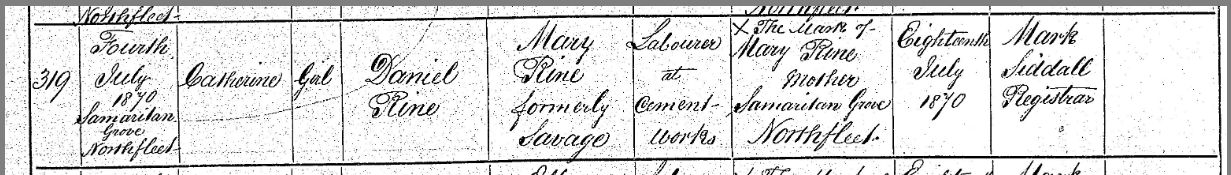 Northfleet
319
Fourth
July
1870
Samaritan
Grove
Northfleet
Catherine
Girl
Daniel
Rine
Mary
Rine
formerly
Savage
Labourer
at
Cement-
works
X The Mark of
Mary Rine
Mother
Samaritan Grove
Northfleet.
Eighteenth
July
1870
Mark
Siddall
Registrar